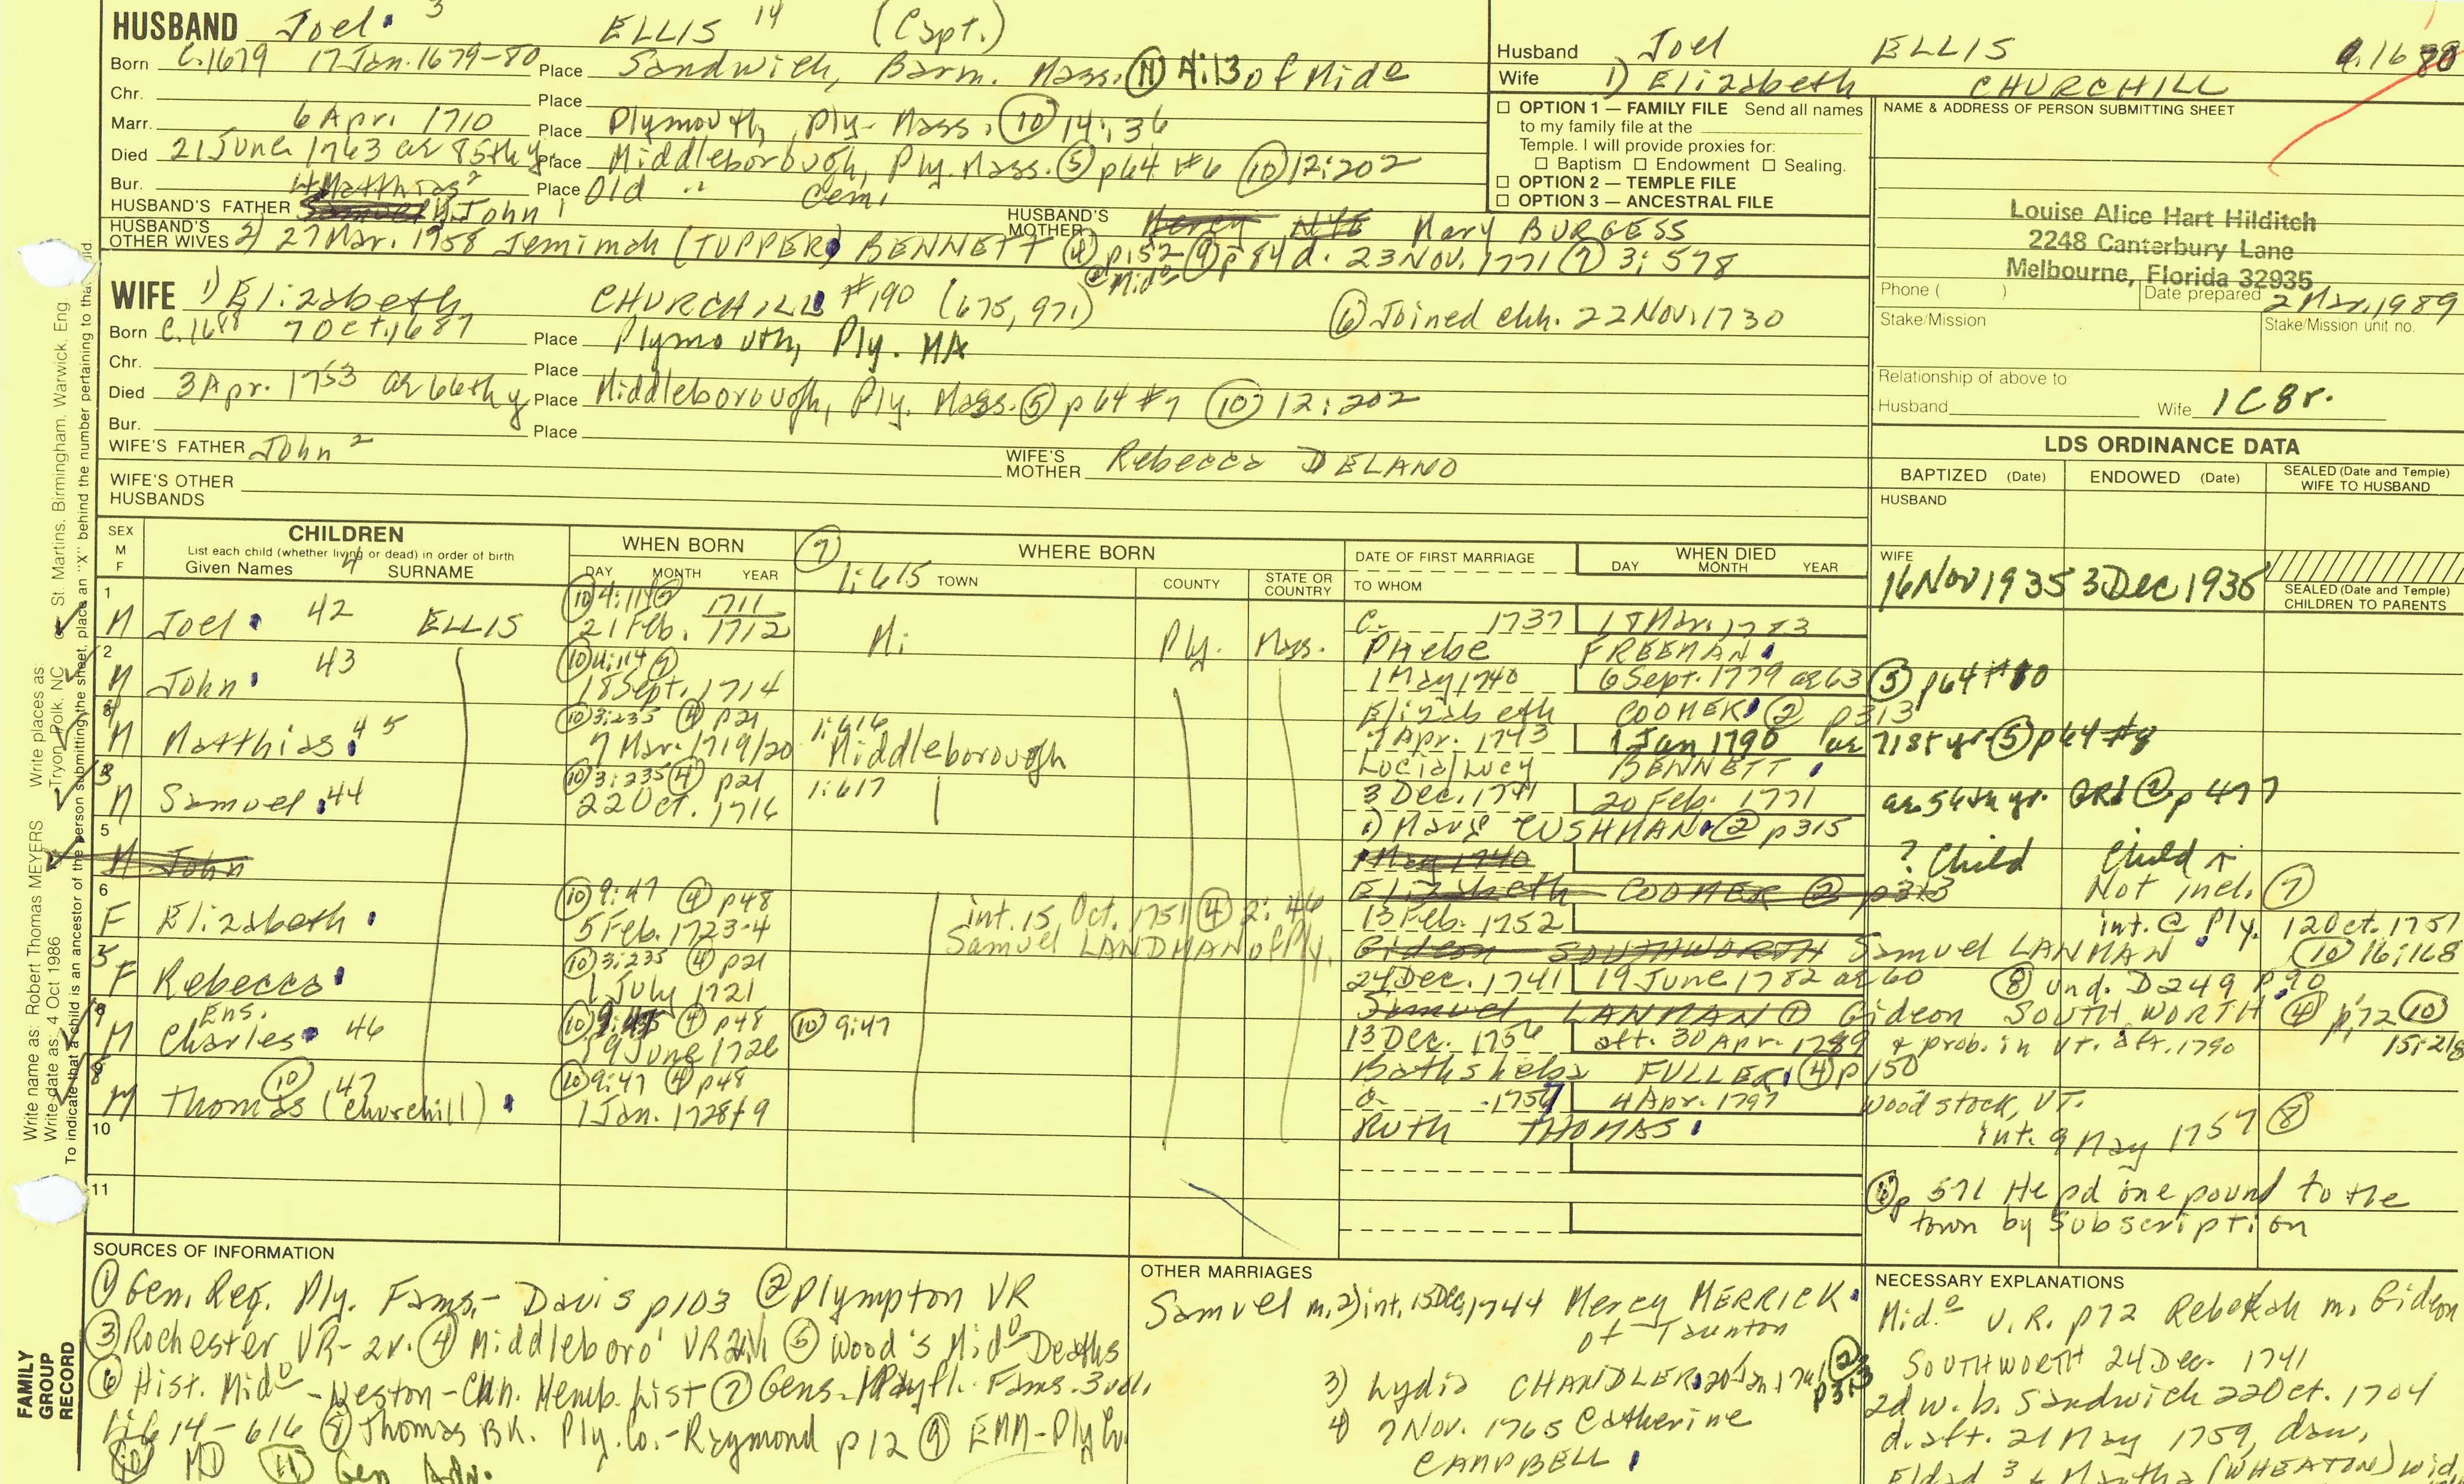 HUSBAND Joel 3 ELLIS 14 (Capt.)
Born c.1679 17 Jan. 1679-80 Place Sandwich, Barn. Mass. (11) A:13 of Mido
Chr. Place
Marr. 6 Apr. 1710 Place Plymouth, Ply. Mass. (10) 14:36
Died 21 June 1763 ae 85thy Place Middleborough, Ply. Mass. (5) p64 #6 (10) 12:202
Bur. Place Old " Cem.
HUSBAND'S FATHER Samuel Matthias 2 John 1 HUSBAND'S MOTHER Mercy NYE Mary BURGESS
HUSBAND'S OTHER WIVES 2) 27 Mar. 1758 Jemimah (TUPPER) BENNETT (4) p152 (9) p84 d. 23 Nov. 1771 (7) 3:578
@ Mido
WIFE 1) Elizabeth CHURCHILL #190 (675, 971) (6) Joined chh. 22 Nov. 1730
Born c.1688 7 Oct. 1687 Place Plymouth, Ply. MA
Chr. Place
Died 3 Apr. 1753 ae 66thy Place Middleborough, Ply. Mass. (5) p64 #7 (10) 12:202
Bur. Place
WIFE'S FATHER John 2 WIFE'S MOTHER Rebecca DELANO
WIFE'S OTHER HUSBANDS
Husband Joel ELLIS c.1680
Wife 1) Elizabeth CHURCHILL
OPTION 1 — FAMILY FILE Send all names
to my family file at the
Temple. I will provide proxies for:
Baptism Endowment Sealing.
OPTION 2 — TEMPLE FILE
OPTION 3 — ANCESTRAL FILE
NAME & ADDRESS OF PERSON SUBMITTING SHEET
Louise Alice Hart Hilditch
2248 Canterbury Lane
Melbourne, Florida 32935
Phone ( ) Date prepared 2 Mar. 1989
Stake/Mission Stake/Mission unit no.
Relationship of above to
Husband Wife 1C8r.
LDS ORDINANCE DATA
BAPTIZED (Date) ENDOWED (Date) SEALED (Date and Temple) WIFE TO HUSBAND
HUSBAND
WIFE
16 Nov 1935 3 Dec 1935
SEALED (Date and Temple) CHILDREN TO PARENTS
SEX M F CHILDREN WHEN BORN (7) WHERE BORN DATE OF FIRST MARRIAGE WHEN DIED
List each child (whether living or dead) in order of birth
Given Names 4 SURNAME DAY MONTH YEAR 1:615 TOWN COUNTY STATE OR COUNTRY TO WHOM DAY MONTH YEAR
1 (10) 1711
M Joel 42 ELLIS 21 Feb. 1712 Mi Ply. Mass. c. 1737 18 Mar. 1783
Phebe FREEMAN
2
M John 43 18 Sept. 1714 1 May 1740 6 Sept. 1779 ae 63 (5) p64 #10
Elizabeth COOMER (2) p313
(10) 3:235 (4) p21 1:616
M Matthias 45 7 Mar. 1719/20 Middleborough 7 Apr. 1743 1 Jan 1790 ae 71st yr (5) p64 #8
Lucia/Lucy BENNETT
(10) 3:235 (4) p21 1:617
M Samuel 44 22 Oct. 1716 3 Dec. 1741 20 Feb. 1771 ae 54th yr. GR1 (2) p477
1) Mary CUSHMAN (2) p315
5
M John 1 May 1740 ? Child Child
Elizabeth COOMER (2) p313 Not incl. (7)
6 (10) 9:47 (4) p48 int. 15 Oct. 1751 (4) 2:46
F Elizabeth 5 Feb. 1723-4 Samuel LANDMAN of Ply. 13 Feb. 1752 int. @ Ply. 12 Oct. 1751
Gideon SOUTHWORTH Samuel LANMAN (10) 16:168
(10) 3:235 (4) p21
F Rebecca 1 July 1721 24 Dec. 1741 19 June 1782 ae 60 (8) und. D249 p.90
Samuel LANMAN (1) Gideon SOUTHWORTH (4) p72 (10) 15:218
Ens. (4) p48 (10) 9:47
M Charles 46 19 June 1726 13 Dec. 1756 aft. 30 Apr. 1789 & prob. in VT. aft. 1790
Bathsheba FULLER (4) p150
(10) (10) 9:47 (4) p48
M Thomas (Churchill) 47 1 Jan. 1728/9 1757 4 Apr. 1797 Woodstock, VT.
Ruth THOMAS int. 9 May 1757 (8)
10
11
(6) p 571 He pd one pound to the
town by subscription
SOURCES OF INFORMATION
(1) Gen. Reg. Ply. Fams.- Davis p103 (2) Plympton VR
(3) Rochester VR- 2v. (4) Middleboro' VR (5) Wood's Mido Deaths
(6) Hist. Mido -Weston- Chh. Memb. List (7) Gens. Mayfl. Fams. 3 vol.
1:614-616 (8) Thomas BK. Ply. Co.-Raymond p12 (9) EMM-Ply Co.
(10) MD (11) Gen Adv.
OTHER MARRIAGES
Samuel m. 2) int. 15 Dec. 1744 Mercy MERRICK
of Taunton
3) Lydia CHANDLER (2) p313
4) 7 Nov. 1765 Catherine
CAMPBELL
NECESSARY EXPLANATIONS
Mido V.R. p72 Rebekah m. Gideon
SOUTHWORTH 24 Dec. 1741
2d w. b. Sandwich 22 Oct. 1704
d. aft. 21 May 1759, dau.
Eldad 3 & Martha (WHEATON) wid
Write name as: Robert Thomas MEYERS Write places as: Tryon, Polk, NC or St. Martins, Birmingham, Warwick, Eng
Write date as: 4 Oct 1986
To indicate that a child is an ancestor of the person submitting the sheet, place an "X" behind the number pertaining to that
FAMILY GROUP RECORD